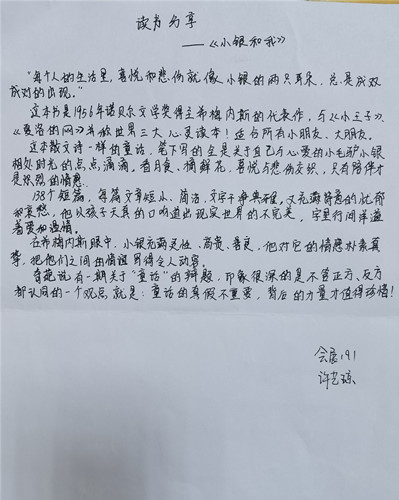 读书分享
——《小银和我》
"每个人的生活里,喜悦和悲伤就像小银的两只耳朵,总是成双
成对的出现。"
这本书是1956年诺贝尔文学奖得主希梅内斯的代表作,与《小王子》
《夏洛的网》并称世界三大心灵读本!适合所有小朋友、大朋友。
这本散文诗一样的童话,笔下写的全是关于自己与心爱的小毛驴小银
相处时光的点点滴滴。看月食、摘鲜花,喜悦与悲伤交织,只有陪伴才
是浓烈的情感。
138个短篇,每篇文章短小、简洁,文字干净典雅,又充满诗意的忧郁
和哀愁,他以孩子天真的口吻道出现实世界的不完美,字里行间洋溢
着爱和温情。
在希梅内斯眼中,小银充满灵性、高贵、善良,他对它的情感朴素真
挚,把他们之间的情谊写得令人动容。
奇葩说有一期关于"童话"的辩题,印象很深的是不管正方、反方
都认同的一个观点就是:童话的真假不重要,背后的力量才值得珍惜!
会展191
许艺琼